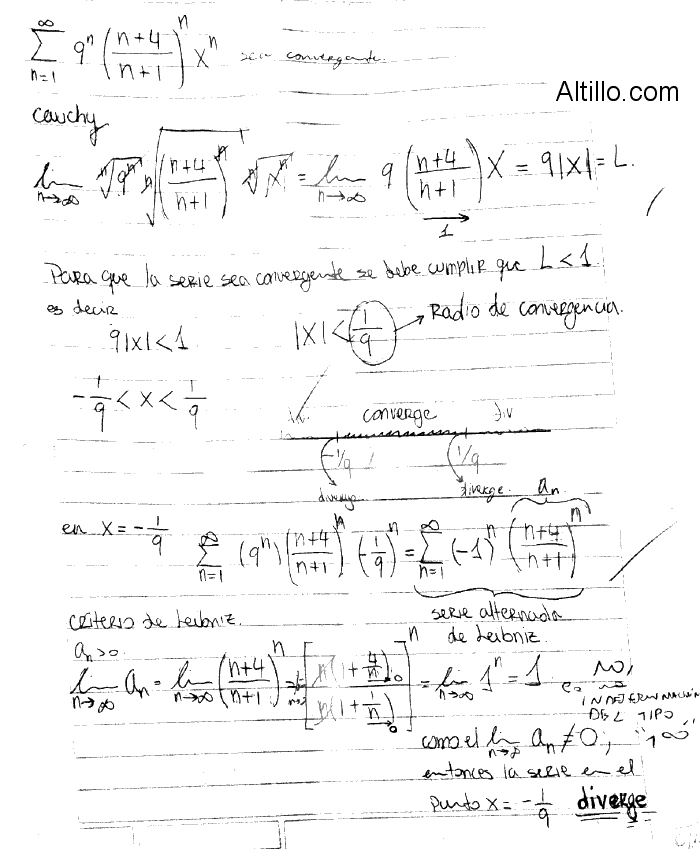 ∞
∑ 9ⁿ ((n+4)/(n+1))ⁿ xⁿ sea convergente.
n=1
Altillo.com
Cauchy
lim n→∞ ⁿ√9ⁿ ⁿ√((n+4)/(n+1))ⁿ ⁿ√xⁿ = lim n→∞ 9 ((n+4)/(n+1)) X = 9|X| = L.
1
Para que la serie sea convergente se debe cumplir que L < 1
es decir
9|x| < 1 |x| < 1/9 → Radio de convergencia.
-1/9 < x < 1/9
converge div
-1/9 1/9
diverge diverge.
aₙ
en x = -1/9 ∑ n=1 ∞ (9ⁿ) ((n+4)/(n+1))ⁿ (-1/9)ⁿ = ∑ n=1 ∞ (-1)ⁿ ((n+4)/(n+1))ⁿ
criterio de Leibniz. serie alternada
de Leibniz.
aₙ>0
lim n→∞ aₙ = lim n→∞ ((n+4)/(n+1))ⁿ = lim n→∞ [n(1+4/n)→0 / n(1+1/n)→0]ⁿ = lim n→∞ 1ⁿ = 1 NO,
es una
INDETERMINACIÓN
DEL TIPO
"1^∞"
como el lim n→∞ aₙ ≠ 0,
entonces la serie en el
punto x = -1/9 diverge